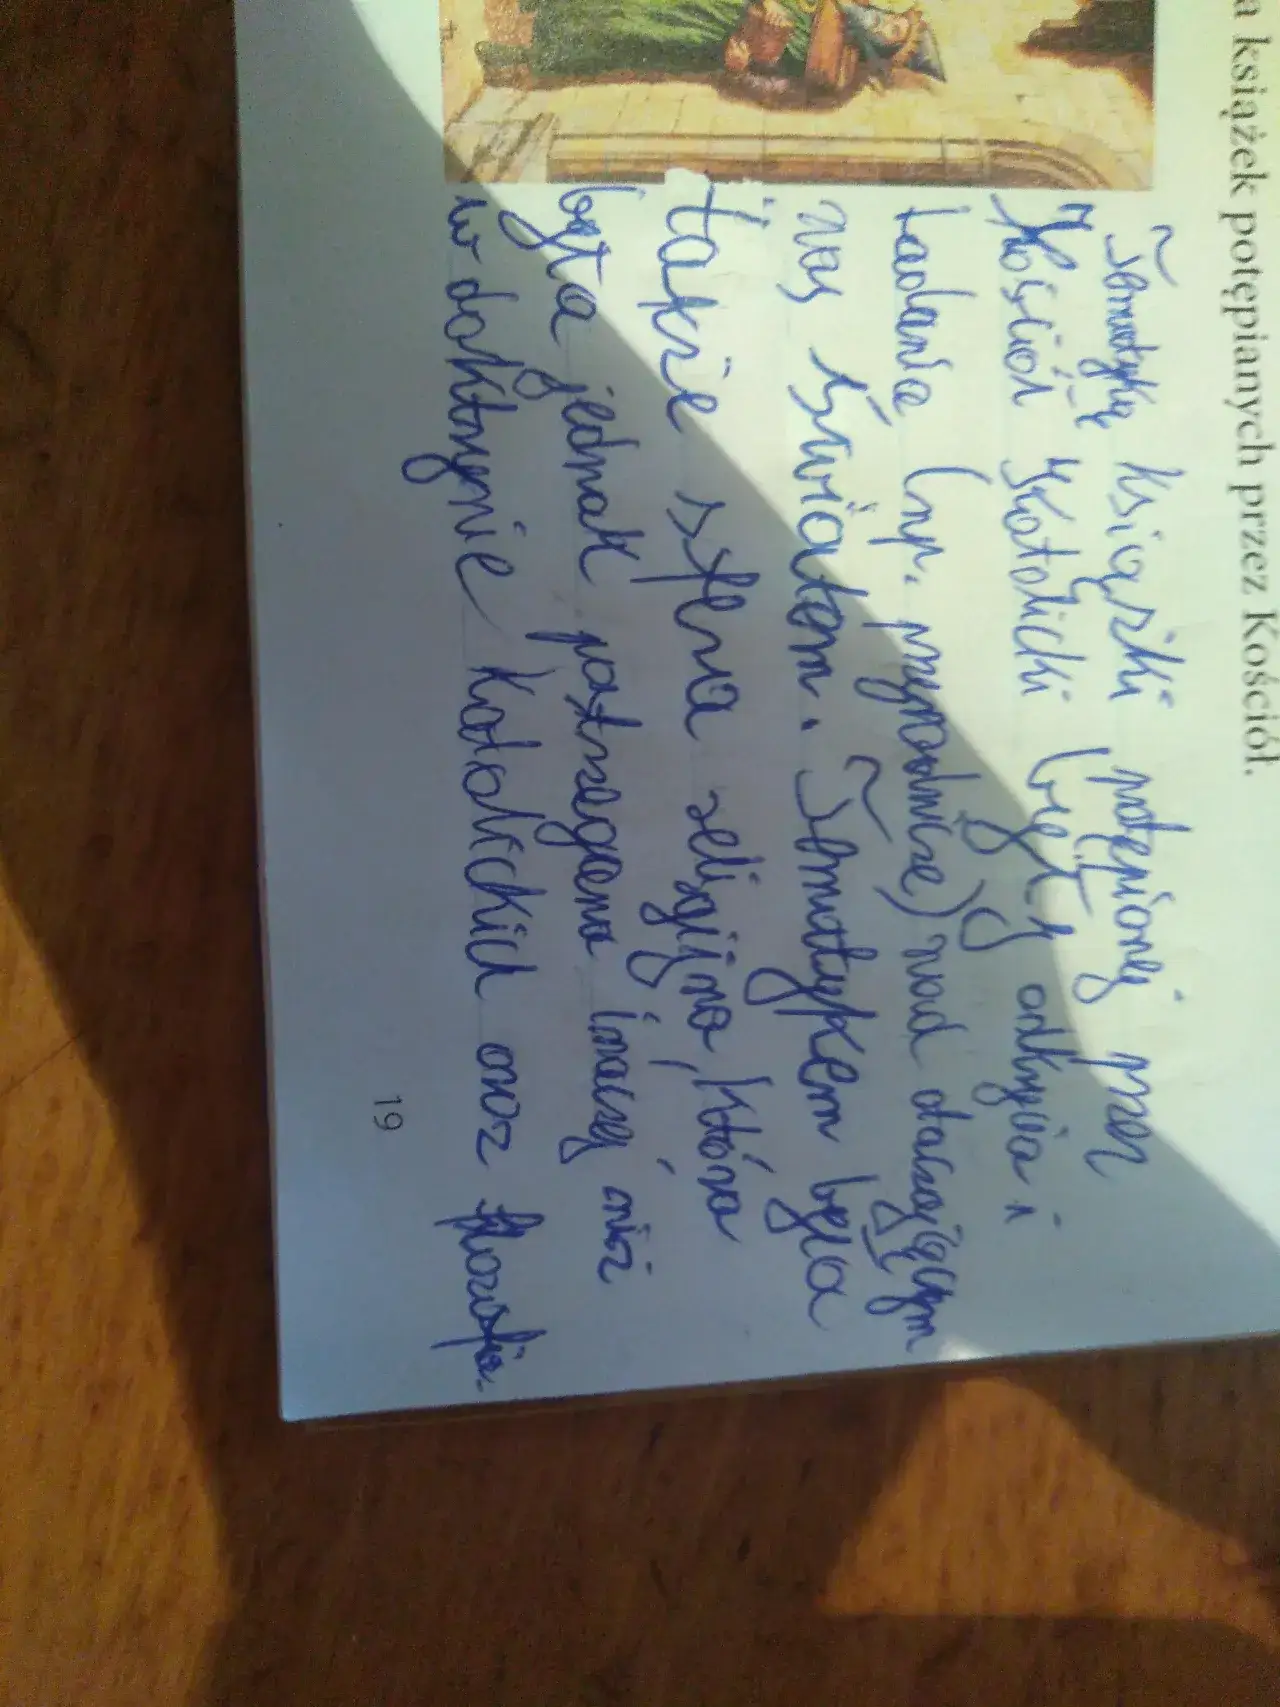 a książek potępianych przez Kościół.
Tematyką książki potępionej przez
Kościół Katolicki były odkrycia i
badania (np. przyrodnicze) nad otaczającym
nas światem. Tematykem była
także sfera religijna, która
była jednak postrzegana inaczej niż
w doktrynie katolickiej oraz filozofia.
19